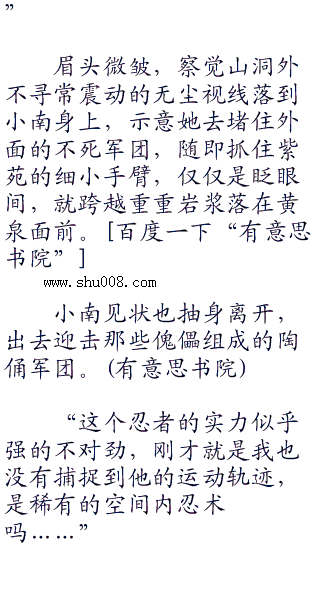 ”
眉头微皱，察觉山洞外
不寻常震动的无尘视线落到
小南身上，示意她去堵住外
面的不死军团，随即抓住紫
苑的细小手臂，仅仅是眨眼
间，就跨越重重岩浆落在黄
泉面前。[百度一下“有意思
书院”]
www.shu008.com
小南见状也抽身离开，
出去迎击那些傀儡组成的陶
俑军团。(有意思书院)
“这个忍者的实力似乎
强的不对劲，刚才就是我也
没有捕捉到他的运动轨迹，
是稀有的空间内忍术
吗……”